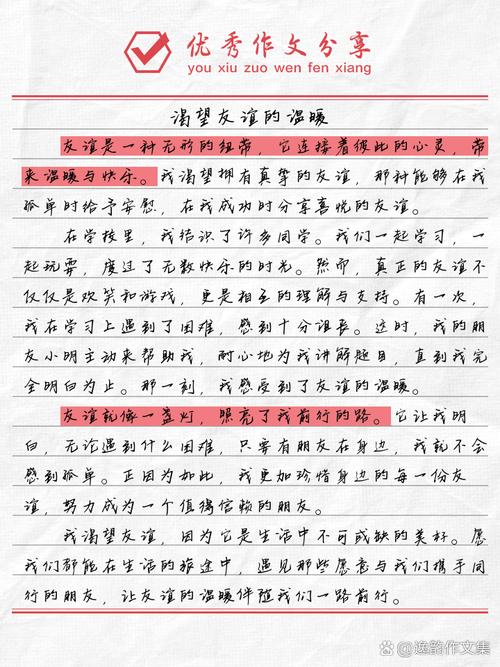 优秀作文分享
you xiu zuo wen fen xiang
渴望友谊的温暖
友谊是一种无形的纽带，它连接着彼此的心灵，带
来温暖与快乐。我渴望拥有真挚的友谊，那种能够在我
孤单时给予安慰，在我成功时分享喜悦的友谊。
在学校里，我结识了许多同学。我们一起学习，一
起玩耍，度过了无数快乐的时光。然而，真正的友谊不
仅仅是欢笑和游戏，更是相互的理解与支持。有一次，
我在学习上遇到了困难，感到十分沮丧。这时，我的朋
友小明主动来帮助我，耐心地为我讲解题目，直到我完
全明白为止。那一刻，我感受到了友谊的温暖。
友谊就像一盏灯，照亮了我前行的路。它让我明
白，无论遇到什么困难，只要有朋友在身边，我就不会
感到孤单。正因为如此，我更加珍惜身边的每一份友
谊，努力成为一个值得信赖的朋友。
我渴望友谊，因为它是生活中不可或缺的美好。愿
我们都能在生活的旅途中，遇见那些愿意与我们携手同
行的朋友，让友谊的温暖伴随我们一路前行。
逸韵作文集